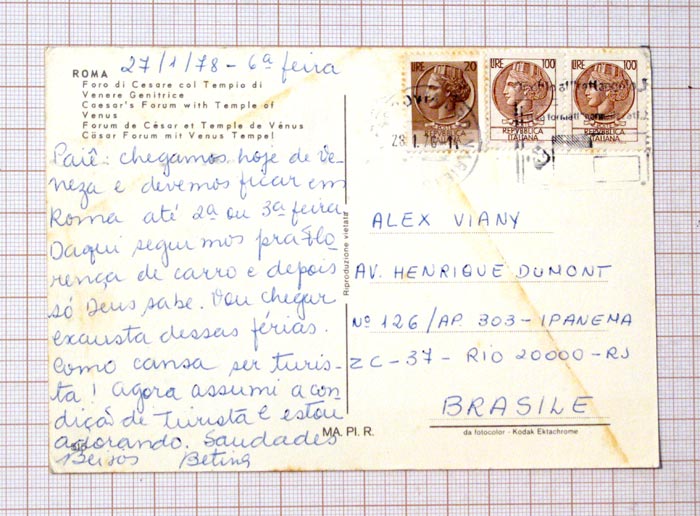 27/1/78 - 6ª feira
ROMA
Foro di Cesare col Tempio di
Venere Genitrice
Caesar's Forum with Temple of
Venus
Forum de César et Temple de Vénus
Cäsar Forum mit Venus Tempel
Paiê: chegamos hoje de Ve-
neza e devemos ficar em
Roma até 2ª ou 3ª feira
Daqui seguimos pra Flo-
rença de carro e depois
só Deus sabe. Vou chegar
exausta dessas férias.
Como cansa ser turis-
ta! Agora assumi a con-
dição de turista e estou
adorando. Saudades
Beijos Betina
Riproduzione vietata
MA. PI. R.
LIRE 20
REPUBBLICA
ITALIANA
LIRE 100
REPVBBLICA
ITALIANA
LIRE 100
REPVBBLICA
ITALIANA
ALEX VIANY
AV. HENRIQUE DUMONT
Nº 126/AP. 303 - IPANEMA
ZC - 37 - RIO 20000 - RJ
BRASILE
da fotocolor - Kodak Ektachrome